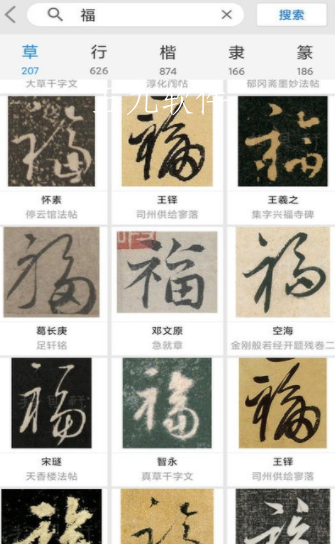 福 搜索
草 行 楷 隶 篆
207 626 874 166 186
大草千字文 淳化阁帖
福 福 福
怀素 王铎 王羲之
停云馆法帖 司州供给寥落 集字兴福寺碑
福 福 福
葛长庚 邓文原 空海
足轩铭 急就章 金刚般若经开题残卷二
福 福 福
宋璲 智永 王铎
天香楼法帖 真草千字文 司州供给寥落